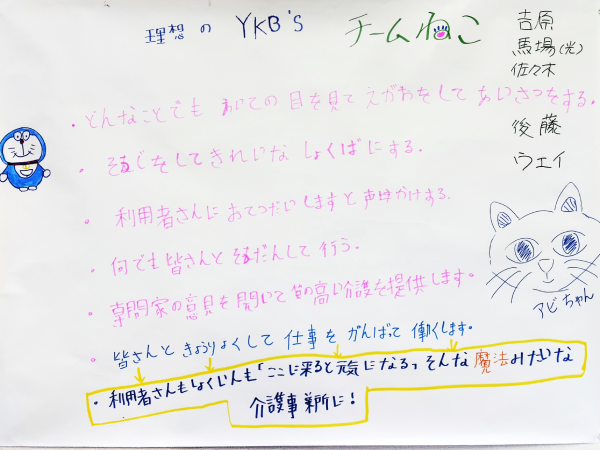 理想の YKB'S チームねこ
吉原
馬場(光)
佐々木
後藤
ウェイ
・どんなことでも あいての目を見て えがおをして あいさつをする。
・そうじをしてきれいな しょくばにする。
・利用者さんに おてつだいしますと声かけする.
・何でも皆さんと そうだんして 行う.
・専問家の意見を聞いて 質の高い介護を提供します。
・皆さんと きょうりょくして 仕事を がんばって 働くします.
・利用者さんもしょくいんも「ここに来ると元気になる」そんな魔法みたいな
介護事業所に!
アビちゃん